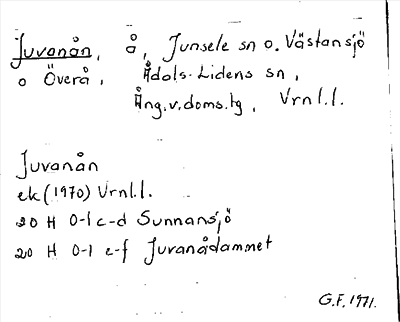 Juvanån, å, Junsele sn o. Västansjö
o Överå, Ådals-Lidens sn,
Ång.v.doms.tg, Vrnl.l.
Juvanån
ek (1970) Vrnl.l.
20 H 0-1 c-d Sunnansjö
20 H 0-1 e-f Juvanådammet
G.F. 1971.